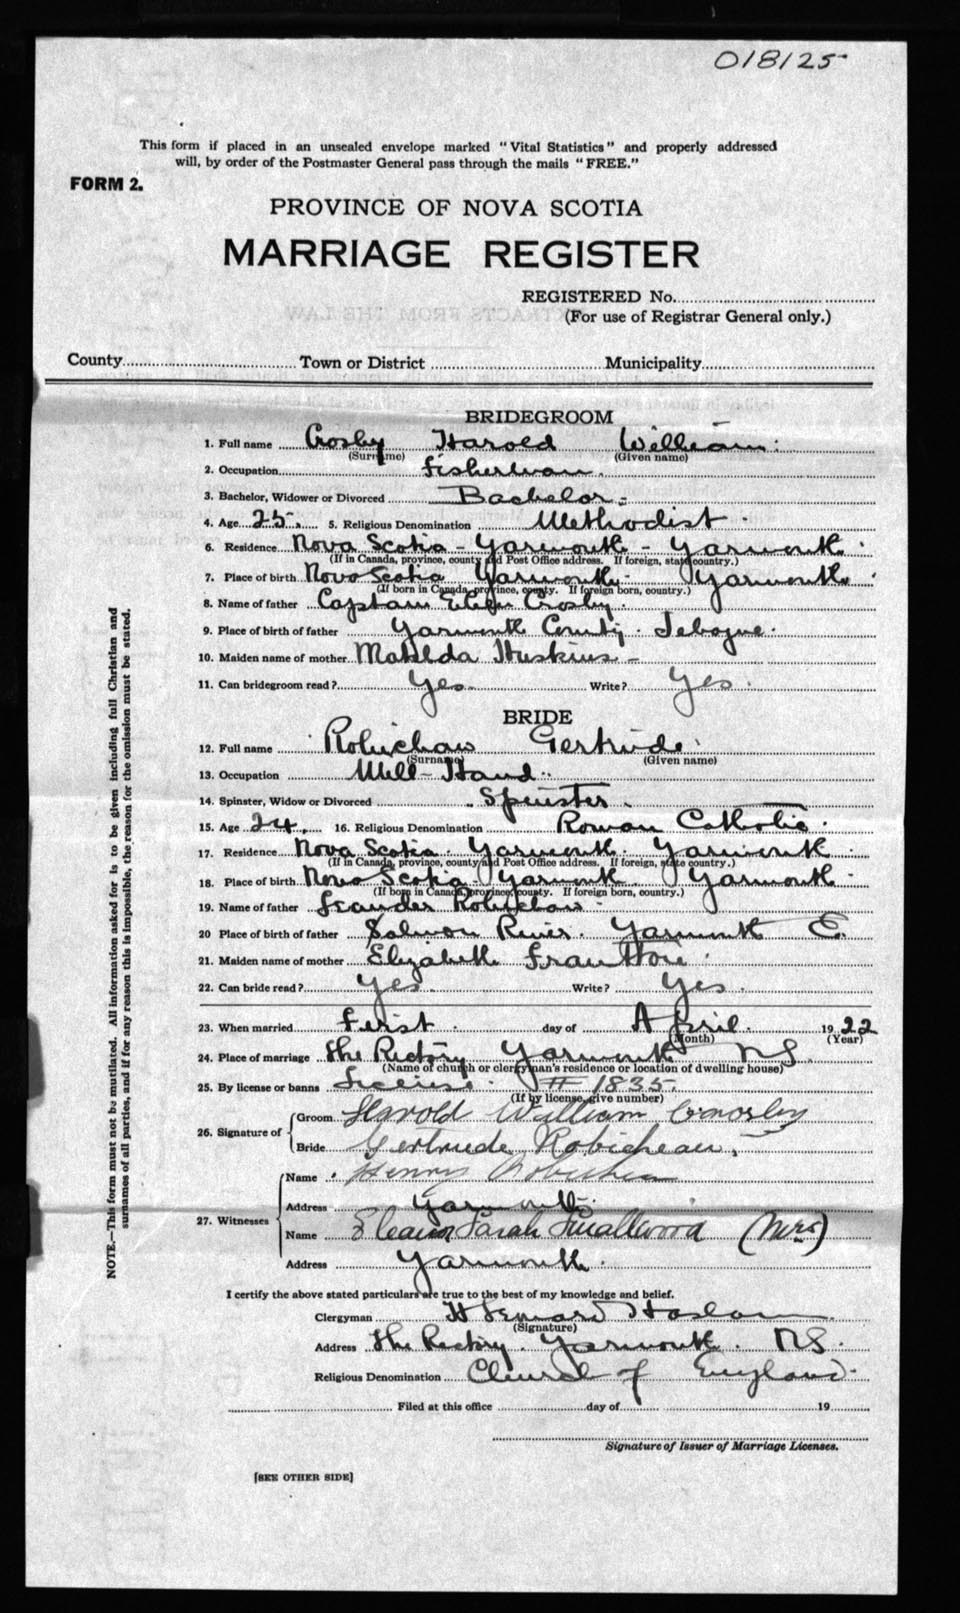 018125
This form if placed in an unsealed envelope marked "Vital Statistics" and properly addressed
will, by order of the Postmaster General pass through the mails "FREE."
FORM 2.
PROVINCE OF NOVA SCOTIA
MARRIAGE REGISTER
REGISTERED No.
(For use of Registrar General only.)
County Town or District Municipality
BRIDEGROOM
1. Full name Crosby Harold William
(Surname) (Given name)
2. Occupation Fisherman.
3. Bachelor, Widower or Divorced Bachelor
4. Age 25. 5. Religious Denomination Methodist
6. Residence Nova Scotia - Yarmouth - Yarmouth
(If in Canada, province, county and Post Office address. If foreign, state country.)
7. Place of birth Nova Scotia Yarmouth Yarmouth
(If born in Canada, province, county. If foreign born, country.)
8. Name of father Captain Crosby.
9. Place of birth of father Yarmouth County. Jebogue.
10. Maiden name of mother Matilda Huskins -
11. Can bridegroom read? Yes Write? Yes
BRIDE
12. Full name Robichaw Gertrude
(Surname) (Given name)
13. Occupation Mill-Hand.
14. Spinster, Widow or Divorced Spinster.
15. Age 24. 16. Religious Denomination Roman Catholic.
17. Residence Nova Scotia. Yarmouth. Yarmouth
(If in Canada, province, county and Post Office address. If foreign, state country.)
18. Place of birth Nova Scotia - Yarmouth. Yarmouth
(If born in Canada, province, county. If foreign born, country.)
19. Name of father Leander Robichaw -
20 Place of birth of father Salmon River. Yarmouth Co.
21. Maiden name of mother Elizabeth
22. Can bride read? Yes. Write? Yes.
23. When married First day of April. 1922
(Month) (Year)
24. Place of marriage The Rectory Yarmouth NS.
(Name of church or clergyman's residence or location of dwelling house)
25. By license or banns License. # 1835.
(If by license, give number)
26. Signature of Groom Harold William Crosby
Bride Gertrude Robicheau,
27. Witnesses Name Henry
Address Yarmouth
Name Eleanor Sarah Smallwood (Mrs)
Address Yarmouth.
I certify the above stated particulars are true to the best of my knowledge and belief.
Clergyman Haslam
(Signature)
Address The Rectory. Yarmouth. NS.
Religious Denomination Church of England
Filed at this office day of 19
Signature of Issuer of Marriage Licenses.
[SEE OTHER SIDE]
NOTE.—This form must not be mutilated. All information asked for is to be given including full Christian and
surnames of all parties, and if for any reason this is impossible, the reason for the omission must be stated.